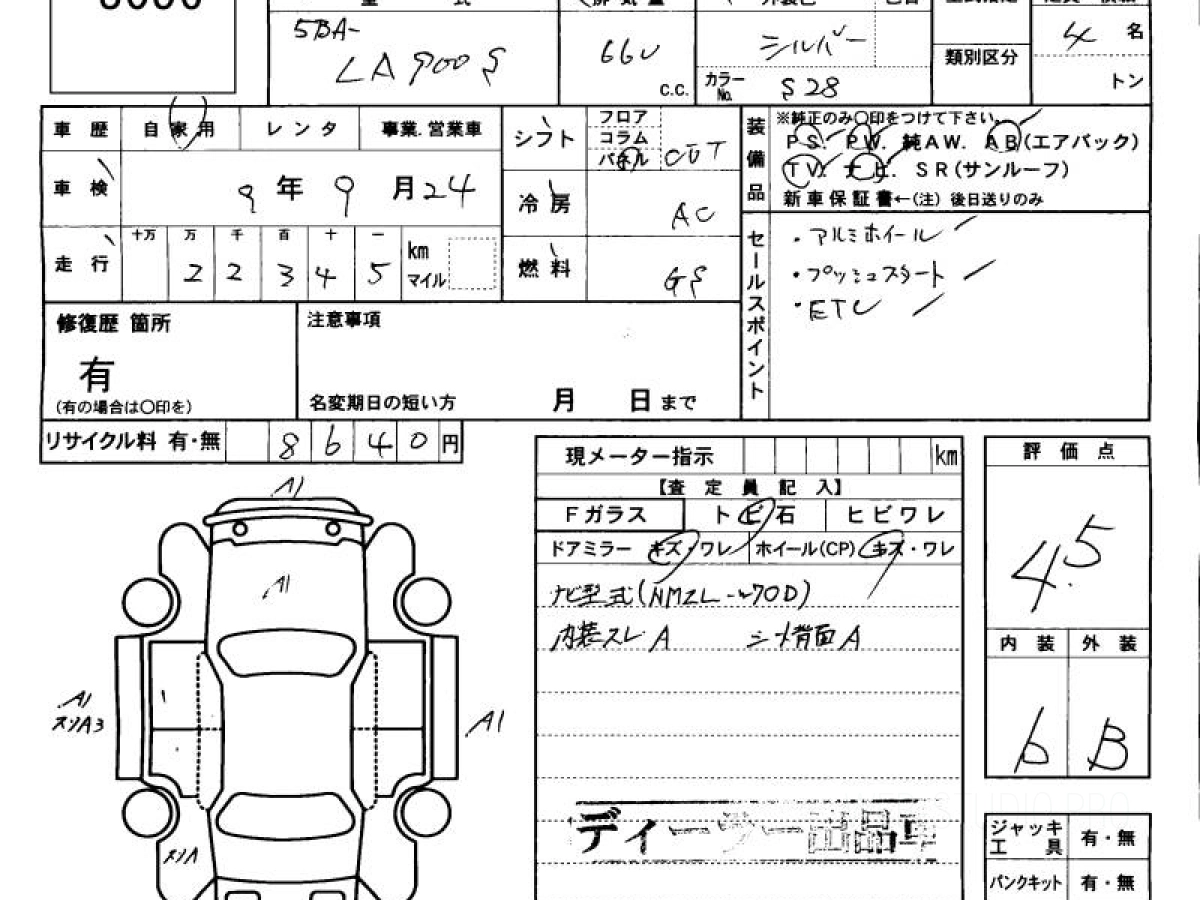 5BA-
LA900S
660
c.c.
シルバー
カラーNo. S28
類別区分
4 名
トン
車歴 自家用 レンタ 事業.営業車
車検 9年9月24
走行 十万 万 千 百 十 一
2 2 3 4 5 km マイル
シフト フロア コラム パネル CVT
冷房 AC
燃料 GS
装備品
※純正のみ〇印をつけて下さい。
PS. PW. 純AW. AB(エアバック)
TV. ナビ. SR(サンルーフ)
新車保証書←(注) 後日送りのみ
セールスポイント
・アルミホイール
・プッシュスタート
・ETC
修復歴 箇所
有
(有の場合は〇印を)
注意事項
名変期日の短い方 月 日まで
リサイクル料 有・無 8640円
現メーター指示 km
【査定員記入】
Fガラス トビ石 ヒビワレ
ドアミラー キズ・ワレ ホイール(CP) キズ・ワレ
ナビ型式(NMZL-W70D)
内装スレA シート背面A
ディーラー出品車
評価点
4.5
内装 外装
b B
ジャッキ工具 有・無
パンクキット 有・無
A1
A1
A1
スリA3
A1
スリA